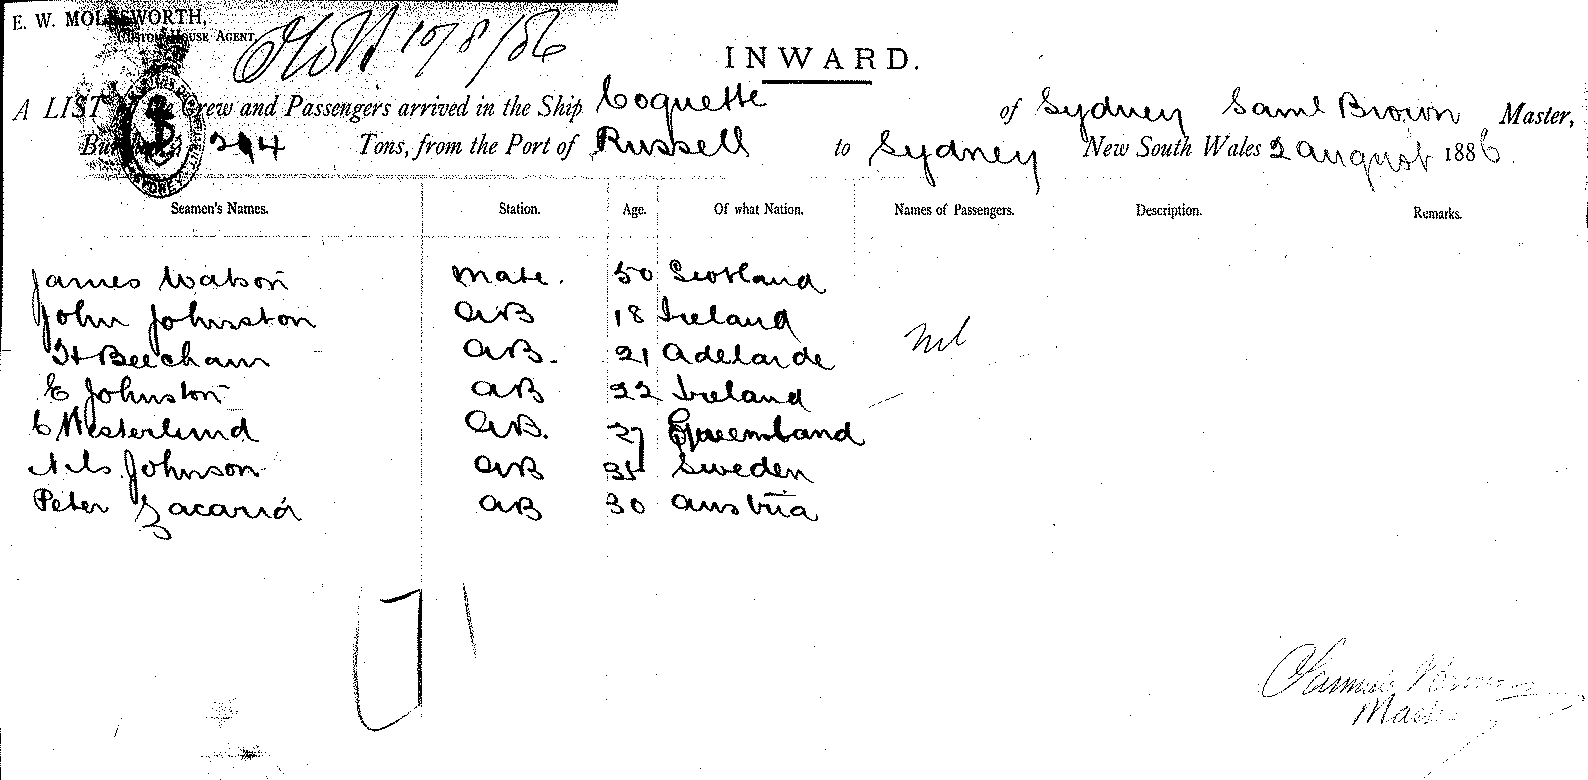 E. W. MOLESWORTH,
Custom House Agent
10/8/86
INWARD.
A LIST of the Crew and Passengers arrived in the Ship Coquette of Sydney Saml Brown Master,
Burthen, 214 Tons, from the Port of Russell to Sydney New South Wales 2 August 1886.
Seamen's Names. Station. Age. Of what Nation. Names of Passengers. Description. Remarks.
James Watson Mate. 50 Scotland
John Johnston AB 18 Ireland
H Beecham AB. 21 Adelaide
Nil
E Johnston AB 22 Ireland
C Westerlund AB. 27 Queensland
Nils Johnson AB 35 Sweden
Peter Zacaria AB 30 Austria
Samuel Brown
Master